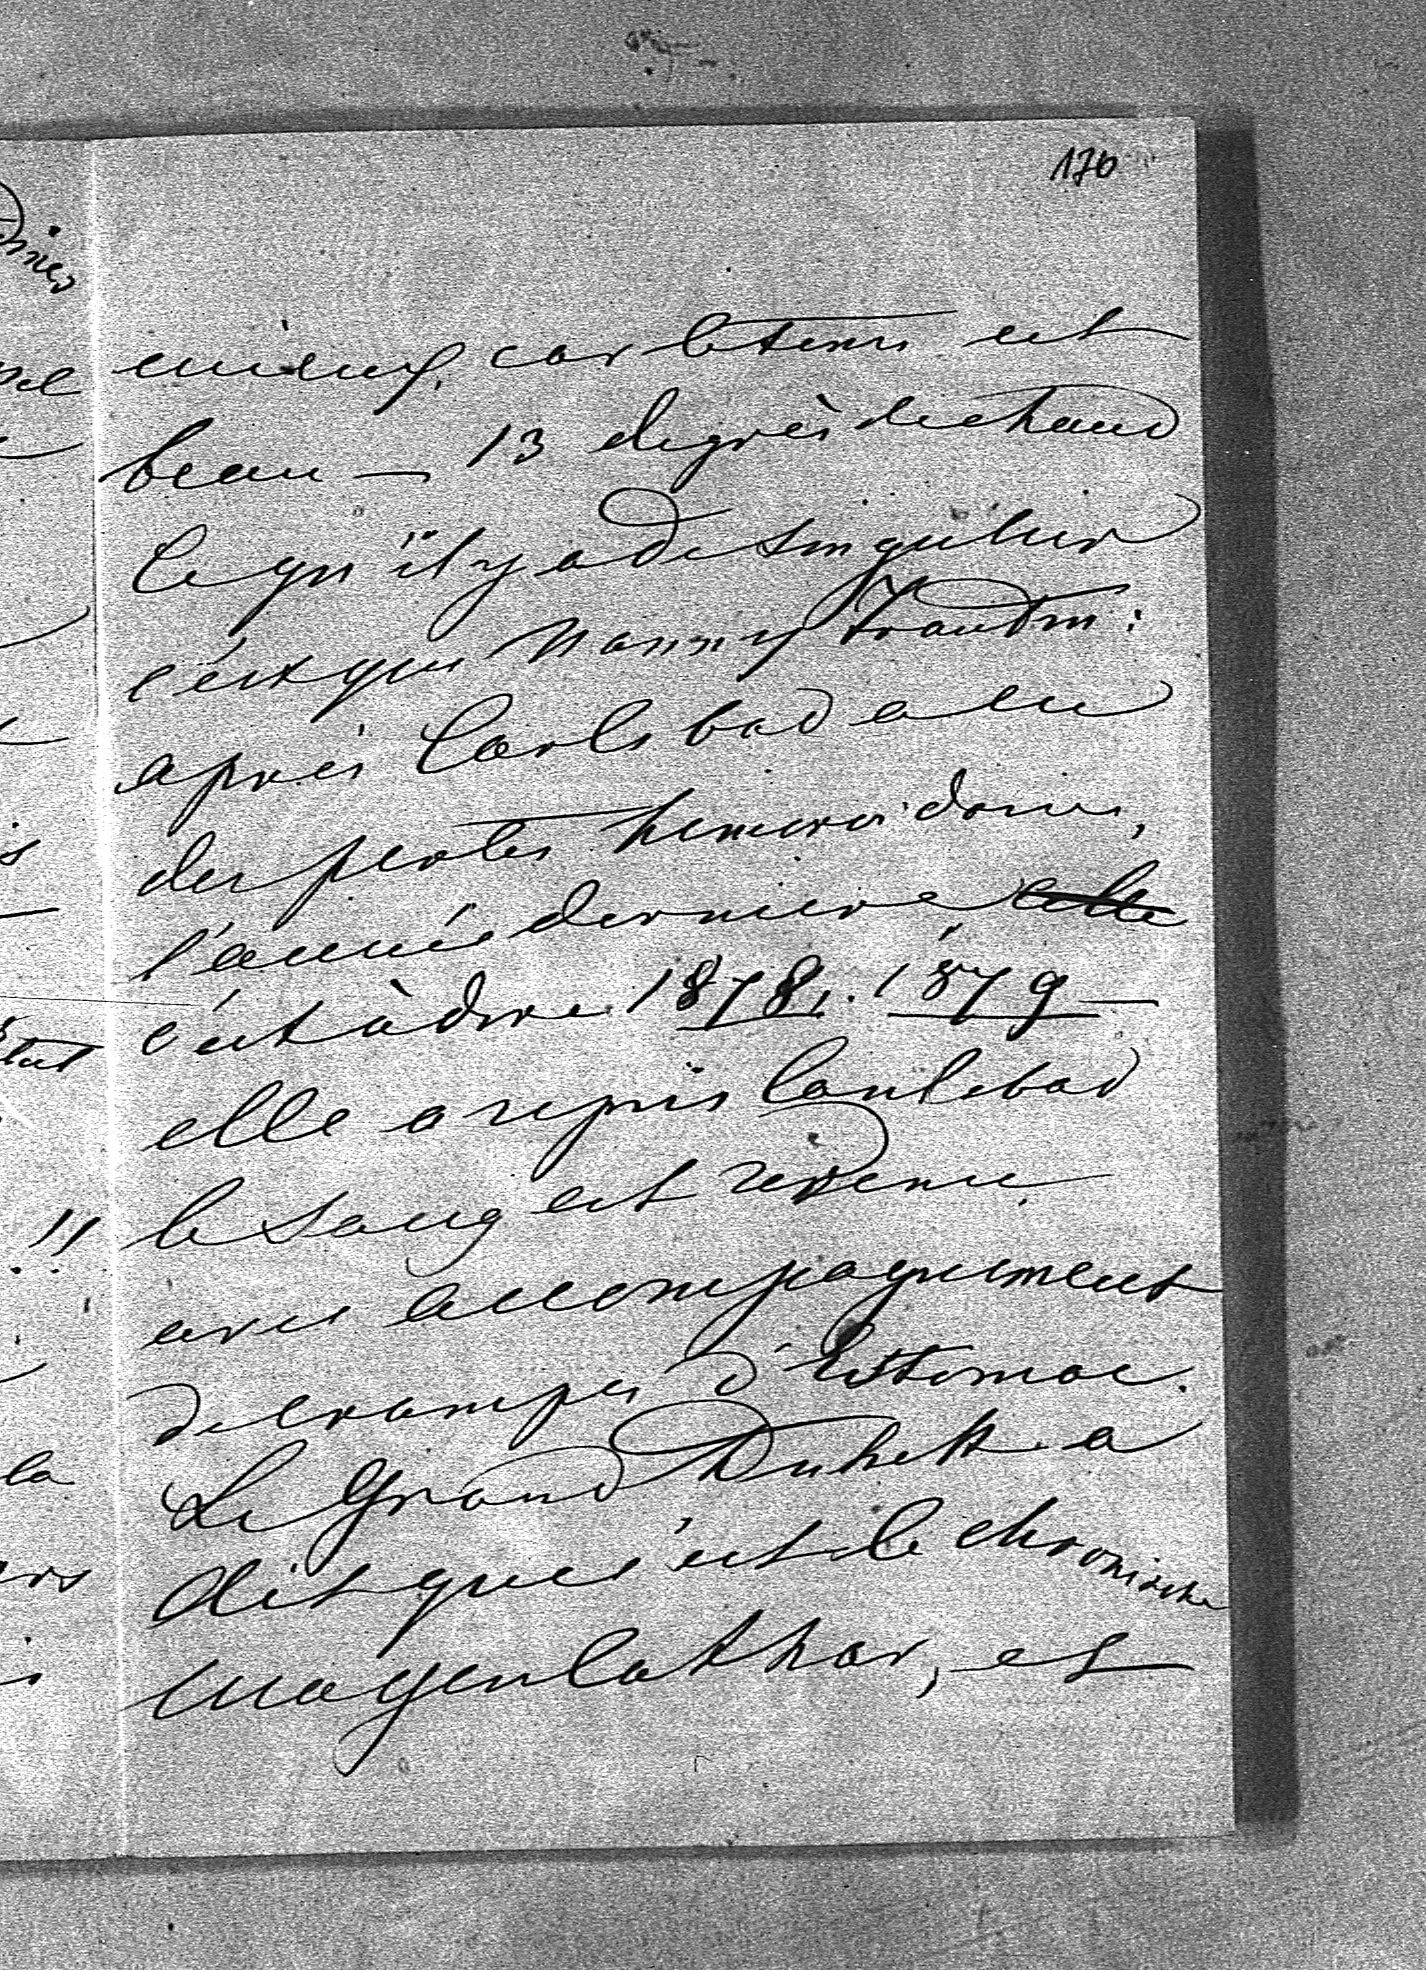 176
mieux, car le tems est
beau — 13 degrès de chaud
Ce qu'il y a de singulier
c'est que Nanny Trautm:
après Carlsbad a eu
des pertes hemoroidaires,
l'année derniere cette
c'est à dire 1878, 1879 —
elle a repris Carlsbad
le sang est revenu
avec accompagnement
de crampes d'Estomac.
Le Grand Duheke a
dit que c'est le chronische
Magenkathar, et